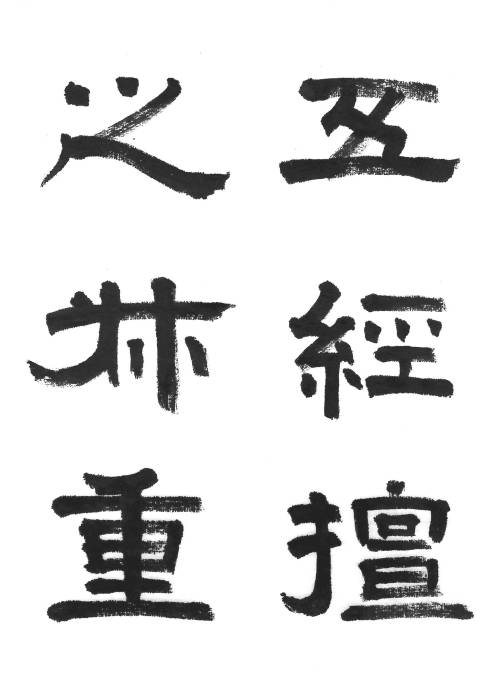 五經擅
之林重